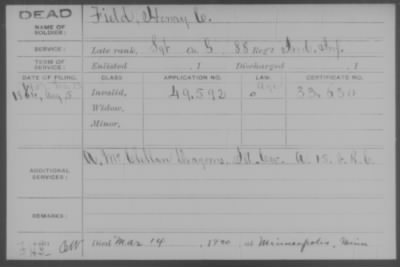 DEAD
NAME OF SOLDIER:
Field, Henry C.
SERVICE:
Late rank, Sgt Co. G, 88 Reg't Ind. Inf.
TERM OF SERVICE:
Enlisted , 1 Discharged , 1
DATE OF FILING. CLASS. APPLICATION NO. LAW. CERTIFICATE NO.
1864, Aug 5 Invalid, 49.592 33.630
Widow,
Minor,
ADDITIONAL SERVICES:
REMARKS:
Died Mar 14, 1920, at Minneapolis, Minn